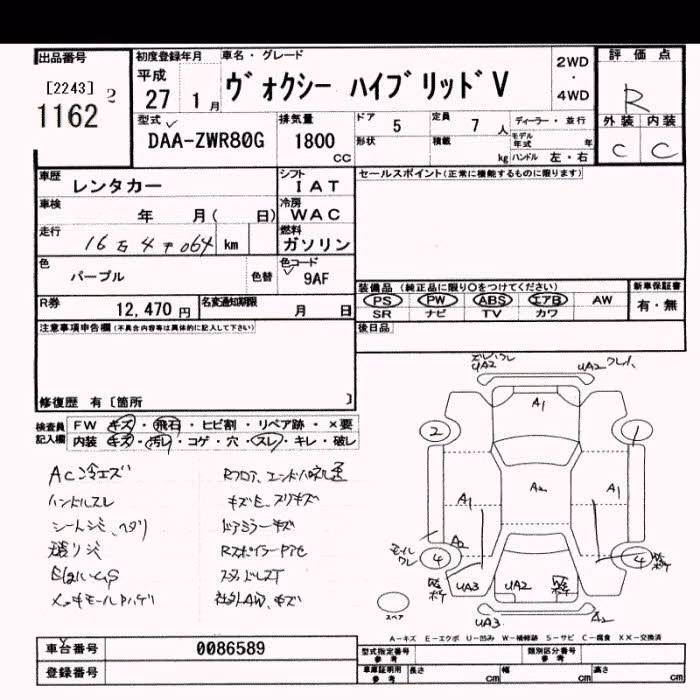 出品番号
[2243]
1162 2
初度登録年月
平成
27 1 月
車名・グレード
ヴォクシー ハイブリッドV
2WD
・
4WD
評価点
R
型式
DAA-ZWR80G
排気量
1800
cc
ドア 5
定員 7 人
ディーラー・並行
形状
積載 kg
モデル年式 年
ハンドル 左・右
外装 内装
C C
車歴
レンタカー
シフト
IAT
セールスポイント(正常に機能するものに限ります)
車検
年 月( 日)
冷房
WAC
走行
16万4千064 km
燃料
ガソリン
色
パープル
色替
色コード
9AF
装備品 (純正品に限り○をつけてください)
新車保証書
PS PW ABS エアB AW
SR ナビ TV カワ
有・無
R券
12,470 円
名変通知期限
月 日
後日品
注意事項申告欄(不具合内容等は具体的に記入して下さい)
修復歴 有〔箇所 〕
検査員
記入欄
FW キズ・飛石・ヒビ割・リペア跡・×要
内装 キズ・汚レ・コゲ・穴・スレ・キレ・破レ
AC冷エズ
ハンドルスレ
シートシミ、ヘタリ
キズ、スリキズ
ドアミラーキズ
社外AW、キズ
UA2
UA2
A1
2
1
A1
A2
A1
A2
4
4
UA3
UA2
W
UA3
A2
スペア
A-キズ E-エクボ U-凹み W-補修跡 S-サビ C-腐食 XX-交換済
車台番号
0086589
登録番号
型式指定番号
参考
類別区分番号
参考
車庫証明用
参考
長さ cm
幅 cm
高さ cm